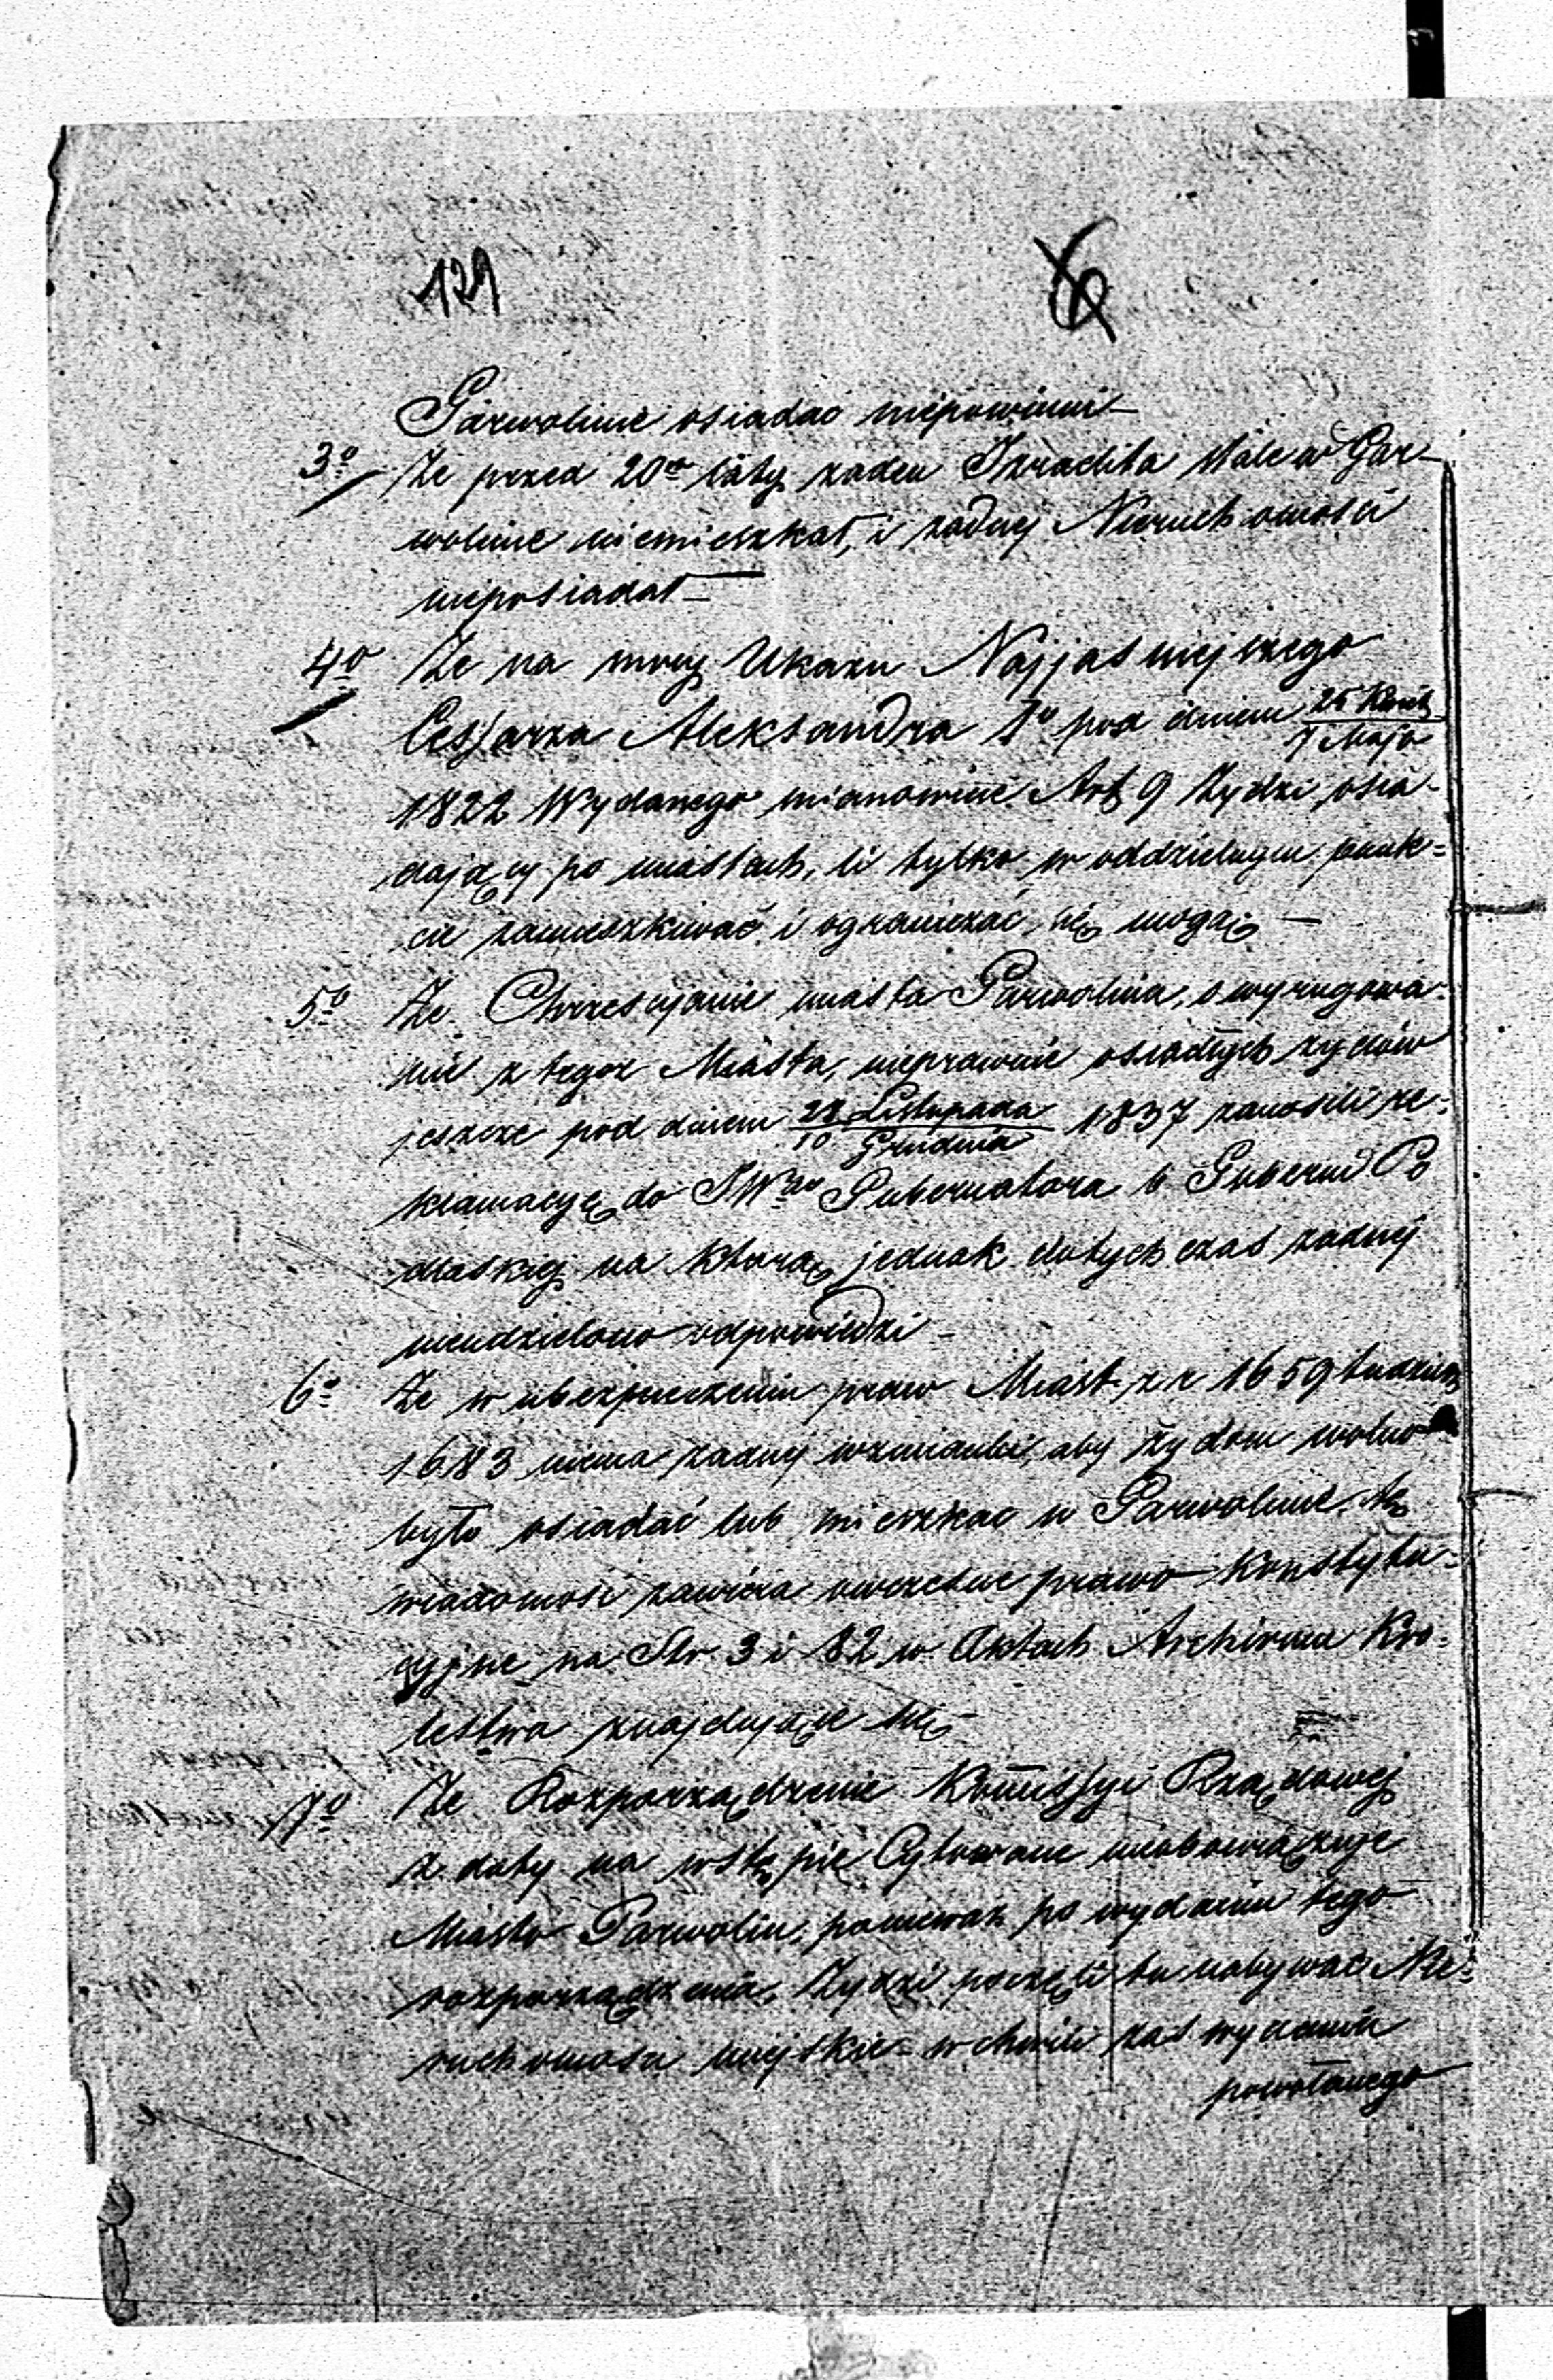 129
Garwolinie osiadać niepowinni —
3o Że przed 20tu laty żaden Izraelita stale w Gar-
wolinie niemieszkał, i żadnej Nieruchomości
nieposiadał —
4o Że na mocy Ukazu Najjasniejszego
Cessarza Aleksandra 1o pod dniem 25 Kwiet / 7 Maja
1822 Wydanego mianowicie Art 9 Żydzi osia-
dający po miastach, li tylko w oddzielnym punk=
cie zamieszkiwać i ograniczać się mogą —
5o Że Chrzescijanie miasta Garwolina, o wyrugowa-
nie z tegoż Miasta, nieprawnie osiadłych żydów
jeszcze pod dniem 28 Listopada / 10 Grudnia 1837 zanosili re-
klamacyę do JWgo Gubernatora b Gubernii Po
dlaskiej na którą jednak dotychczas żadnej
nieudzielono odpowiedzi —
6o Że w ubezpieczeniu praw Miast z r 1659 tudzież
1683 niema żadnej wzmianki, aby żydom wolno
było osiadać lub mieszkac w Garwolinie. Tę
wiadomość zawiera owczesne prawo Konstytu-
cyjne na Str 3 i 82 w Aktach Archiwum Kro-
lestwa znajdujące się —
7o Że Rozporządzenie Kommissyi Rządowej
z daty na wstępie Cytowane nieobowiązuje
Miasto Garwolin, ponieważ po wydaniu tego
rozporządzenia, Żydzi poczęli tu nabywać Nie-
ruchomości miejskie — w chwili zaś wydania
powołanego